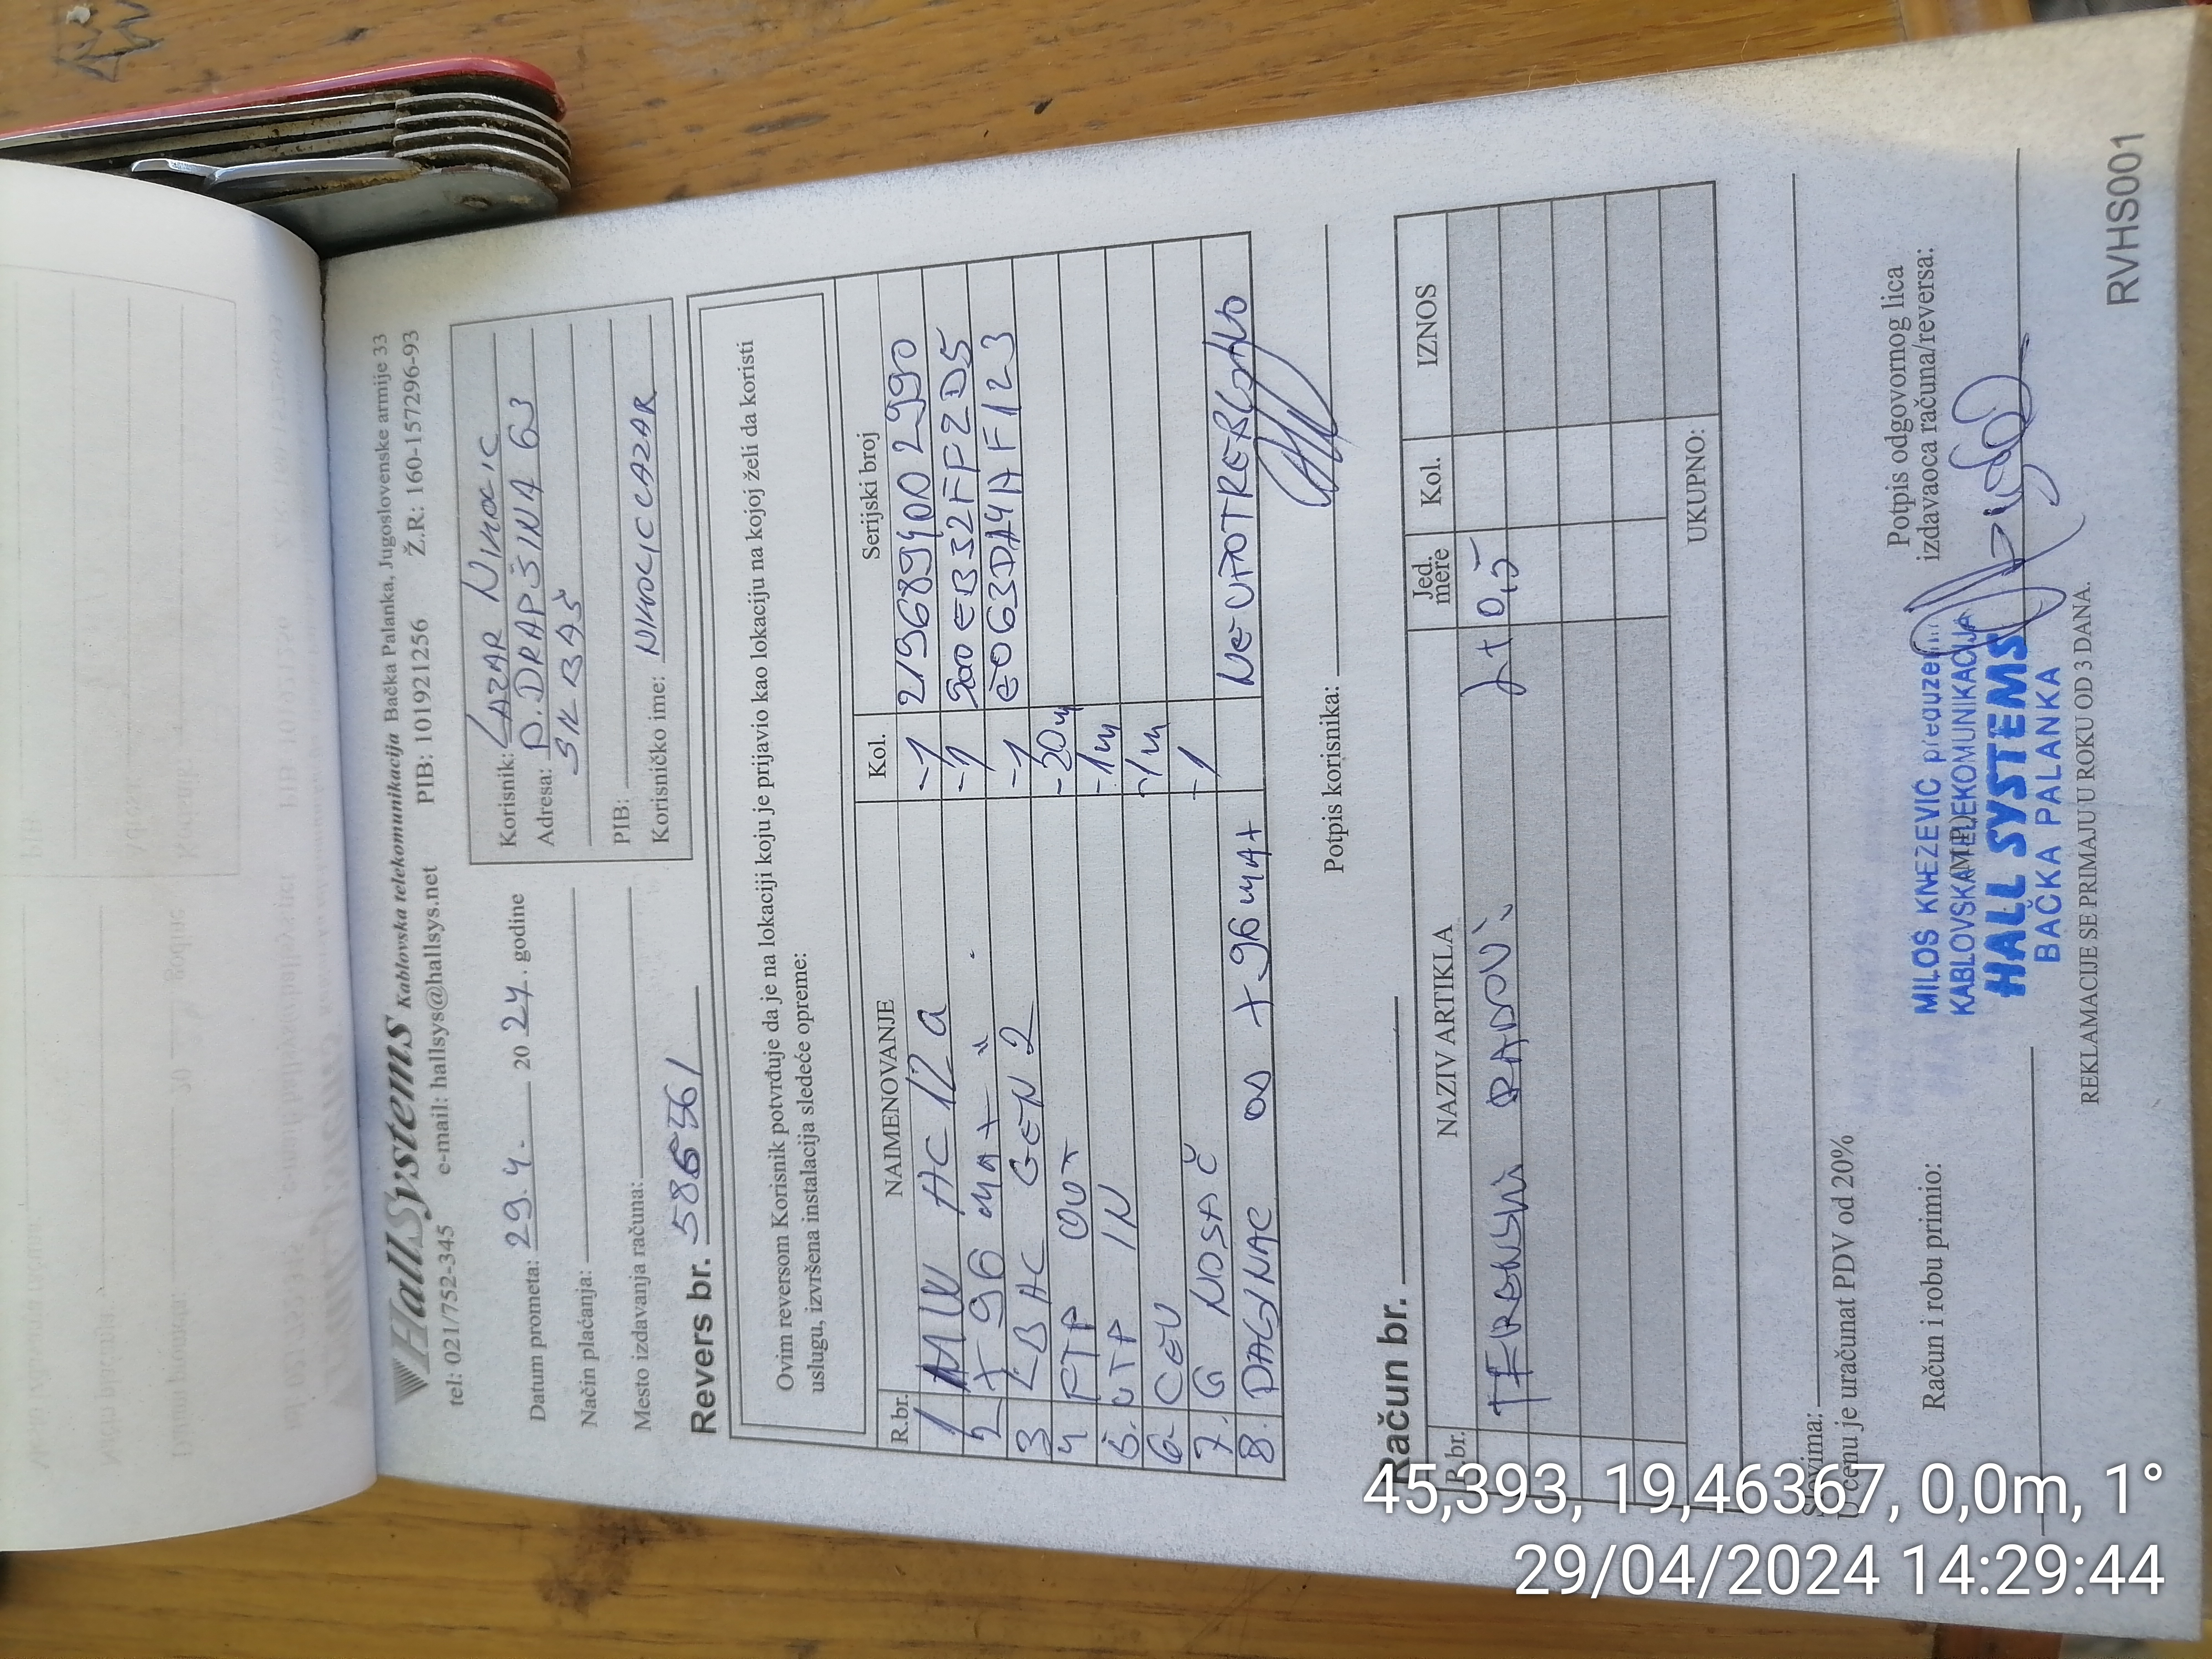 HallSystems Kablovska telekomunikacija Bačka Palanka, Jugoslovenske armije 33
tel: 021/752-345 e-mail: hallsys@hallsys.net PIB: 101921256 Ž.R: 160-157296-93
Datum prometa: 29.4. 20 24. godine
Način plaćanja:
Mesto izdavanja računa:
Korisnik: LAZAR NIKOLIC
Adresa: D. DRAPŠINA 63
PIB:
Korisničko ime: NIKOLICLAZAR
Revers br. 586561
Ovim reversom Korisnik potvrđuje da je na lokaciji koju je prijavio kao lokaciju na kojoj želi da koristi
uslugu, izvršena instalacija sledeće opreme:
R.br. NAIMENOVANJE Kol. Serijski broj
1 HC 12 a -1 2196894002990
2 X 96 max -1 500EB32FF2D5
3 LBAC GEN 2 -1 E063DA4AF123
4 FTP OUT -20m
5. UTP IN -1m
6. CEV -1m
7. G NOSAČ -1
8. DALJINAC OD X 96 max NEUPOTREBLJIVO
Potpis korisnika:
Račun br.
R.br. NAZIV ARTIKLA Jed. mere Kol. IZNOS
TERENSKI RADOVI 0,5
UKUPNO:
Slovima:
U cenu je uračunat PDV od 20%
Račun i robu primio:
Potpis odgovornog lica
izdavaoca računa/reversa:
MILOŠ KNEZEVIĆ preduzetnik
KABLOVSKA TELEKOMUNIKACIJA
HALL SYSTEMS
BAČKA PALANKA
REKLAMACIJE SE PRIMAJU U ROKU OD 3 DANA.
RVHS001
45,393, 19,46367, 0,0m, 1°
29/04/2024 14:29:44